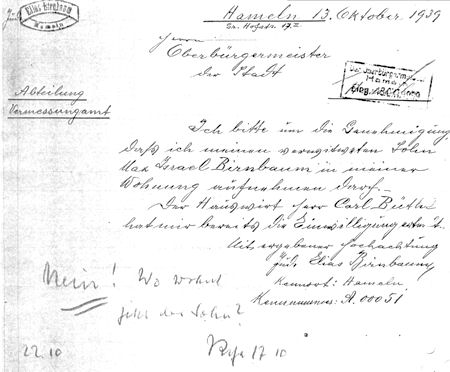 Jüd. Elias Birnbaum
Hameln
Hameln 13. Oktober 1939
Herrn
Oberbürgermeister
der Stadt
Hameln
Abteilung
Vermessungamt
Ich bitte um die Genehmigung,
daß ich meinen verwitweten Sohn
Max Israel Birnbaum in meiner
Wohnung aufnehmen darf.
Der Hauswirt Herr Carl
hat mir bereits die Einwilligung erteilt.
Mit ergebener Hochachtung
Jüd. Elias Birnbaum
Kennort: Hameln
Kennummer: A. 00051
Nein! Wo wohnt
jetzt der Sohn?
22.10
17 10